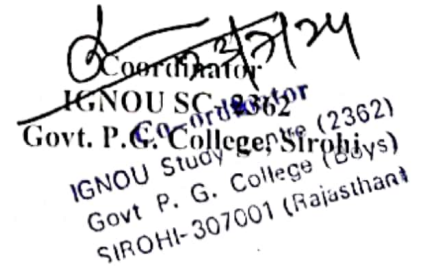 Coordinator
IGNOU SC-2362
Govt. P.G. College, Sirohi
Co-ordinator
IGNOU Study Centre (2362)
Govt P. G. College (Boys)
SIROHI-307001 (Rajasthan)